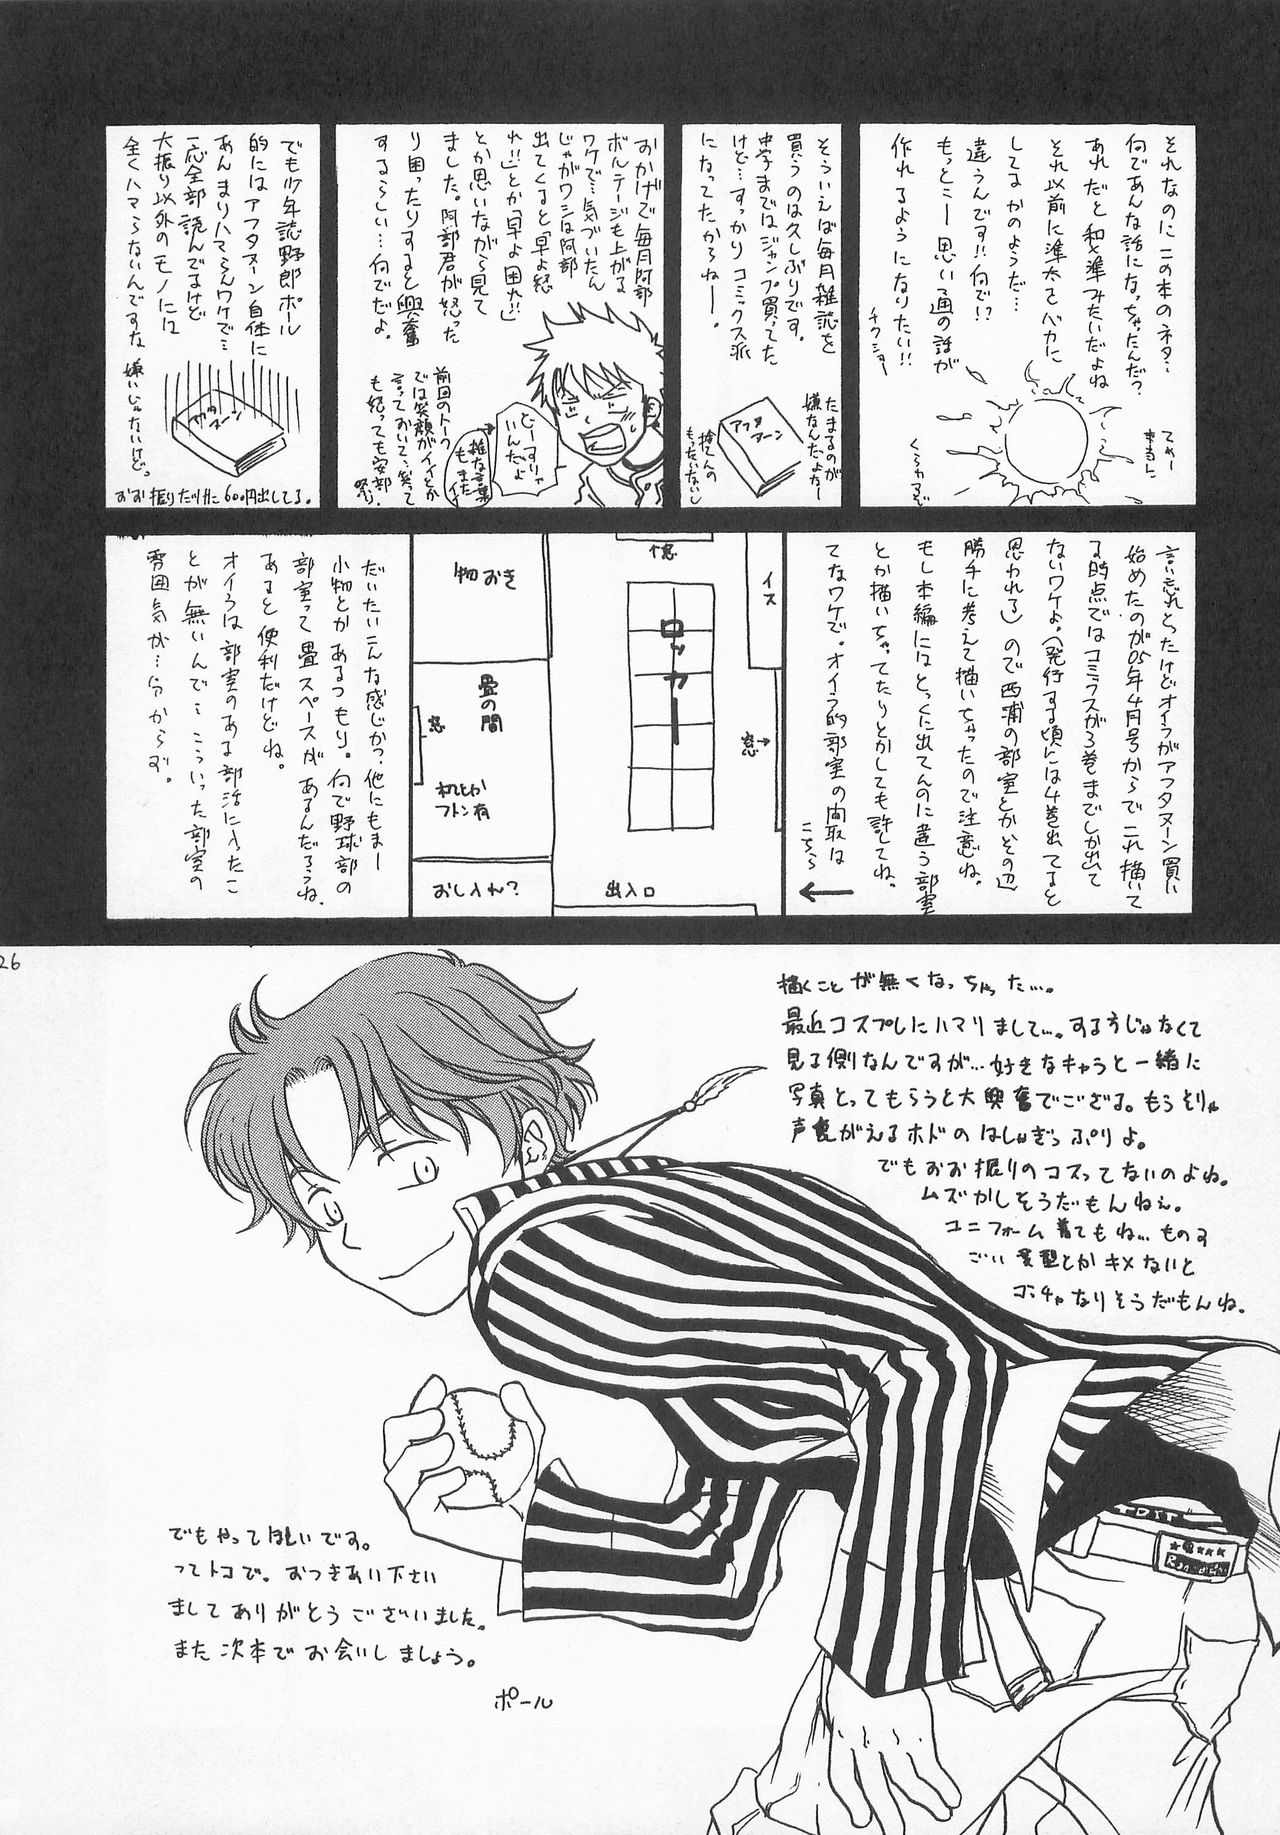 それなのにこの本のネタ…
何であんな話になっちゃったんだ?
あれだと和×準みたいだよね
それ以前に準太をバカに
してるかのようだ…
違うんです!!何で!?
もっとこー思い通りの話が
作れるようになりたい!!
チクショー
そういえば毎月雑誌を
買うのは久しぶりです。
中学まではジャンプ買ってた
けど…すっかりコミックス派
になってたからねー。
たまるのが
嫌なんだよねー
捨てんの
もったいないし
アフタヌーン
おかげで毎月阿部
ボルテージも上がる
ワケで…気づいたん
じゃがワシは阿部
出てくると「早よ怒
れ!!」とか「早よ困れ!!」
とか思いながら見て
ました。阿部君が怒った
り困ったりすると興奮
するらしい…何でだよ。
どーすりゃ
いんだよ
雑な言葉
もまた
イイ
前回のトーク
では笑顔がイイとか
言っておいて…笑って
も怒っても安部
祭り。
でも少年誌野郎ポール
的にはアフタヌーン自体に
あんまりハマらんワケで…
一応全部読んでるけど
大振り以外のモノには
全くハマらないんですな
嫌いじゃないけど。
アフタヌーン
おお振りだけに600円出してる。
言い忘れとったけどオイラがアフタヌーン買い
始めたのが05年4月号からでこれ描いて
る時点ではコミックスが3巻までしか出て
ないワケよ。(発行する頃には4巻出てると
思われる)ので西浦の部室とかその辺
勝手に考えて描いちゃったので注意ね。
もし本編にはとっくに出てんのに違う部室
とか描いちゃってたりとかしても許してね。
てなワケで。オイラ的部室の間取は
こちら
←
イス
窓→
窓
ロッカー
出入口
物おき
畳の間
窓
机とか
フトン有
おし入れ?
だいたいこんな感じか?他にもまー
小物とかあるつもり。何で野球部の
部室って畳スペースがあるんだろうね。
あると便利だけどね。
オイラは部室のある部活に入ったこ
とが無いんで…こういった部室の
雰囲気が…分からず。
26
描くことが無くなっちゃった…。
最近コスプレにハマりまして…。する方じゃなくて
見る側なんですが…好きなキャラと一緒に
写真とってもらうと大興奮でござる。もうそりゃ
声裏がえるホドのはしゃぎっぷりよ。
でもおお振りのコスってないのよね。
ムズかしそうだもんねぇ。
ユニフォーム着てもね…ものす
ごい髪型とかキメないと
ゴッチャなりそうだもんね。
でもやってほしいです。
ってトコで。おつきあい下さい
ましてありがとうございました。
また次本でお会いしましょう。
ポール